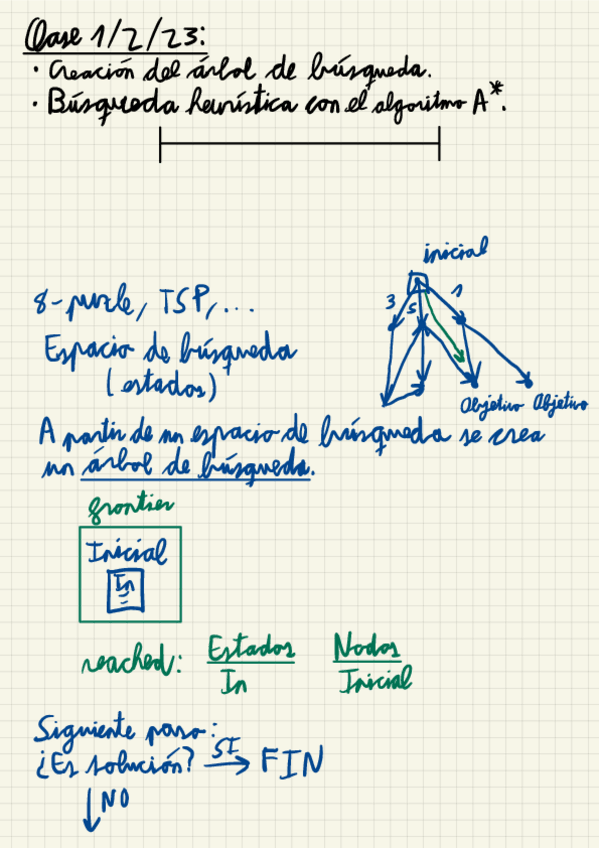 Clase 1/2/23:
· Creación del árbol de búsqueda.
· Búsqueda heurística con el algoritmo A*.
inicial
3 5 1
8-puzle, TSP, ...
Espacio de búsqueda
(estados)
Objetivo Objetivo
A partir de un espacio de búsqueda se crea
un árbol de búsqueda.
frontier
Inicial
In
reached: Estados Nodos
In Inicial
Siguiente paso:
¿Es solución? SI → FIN
↓ NO